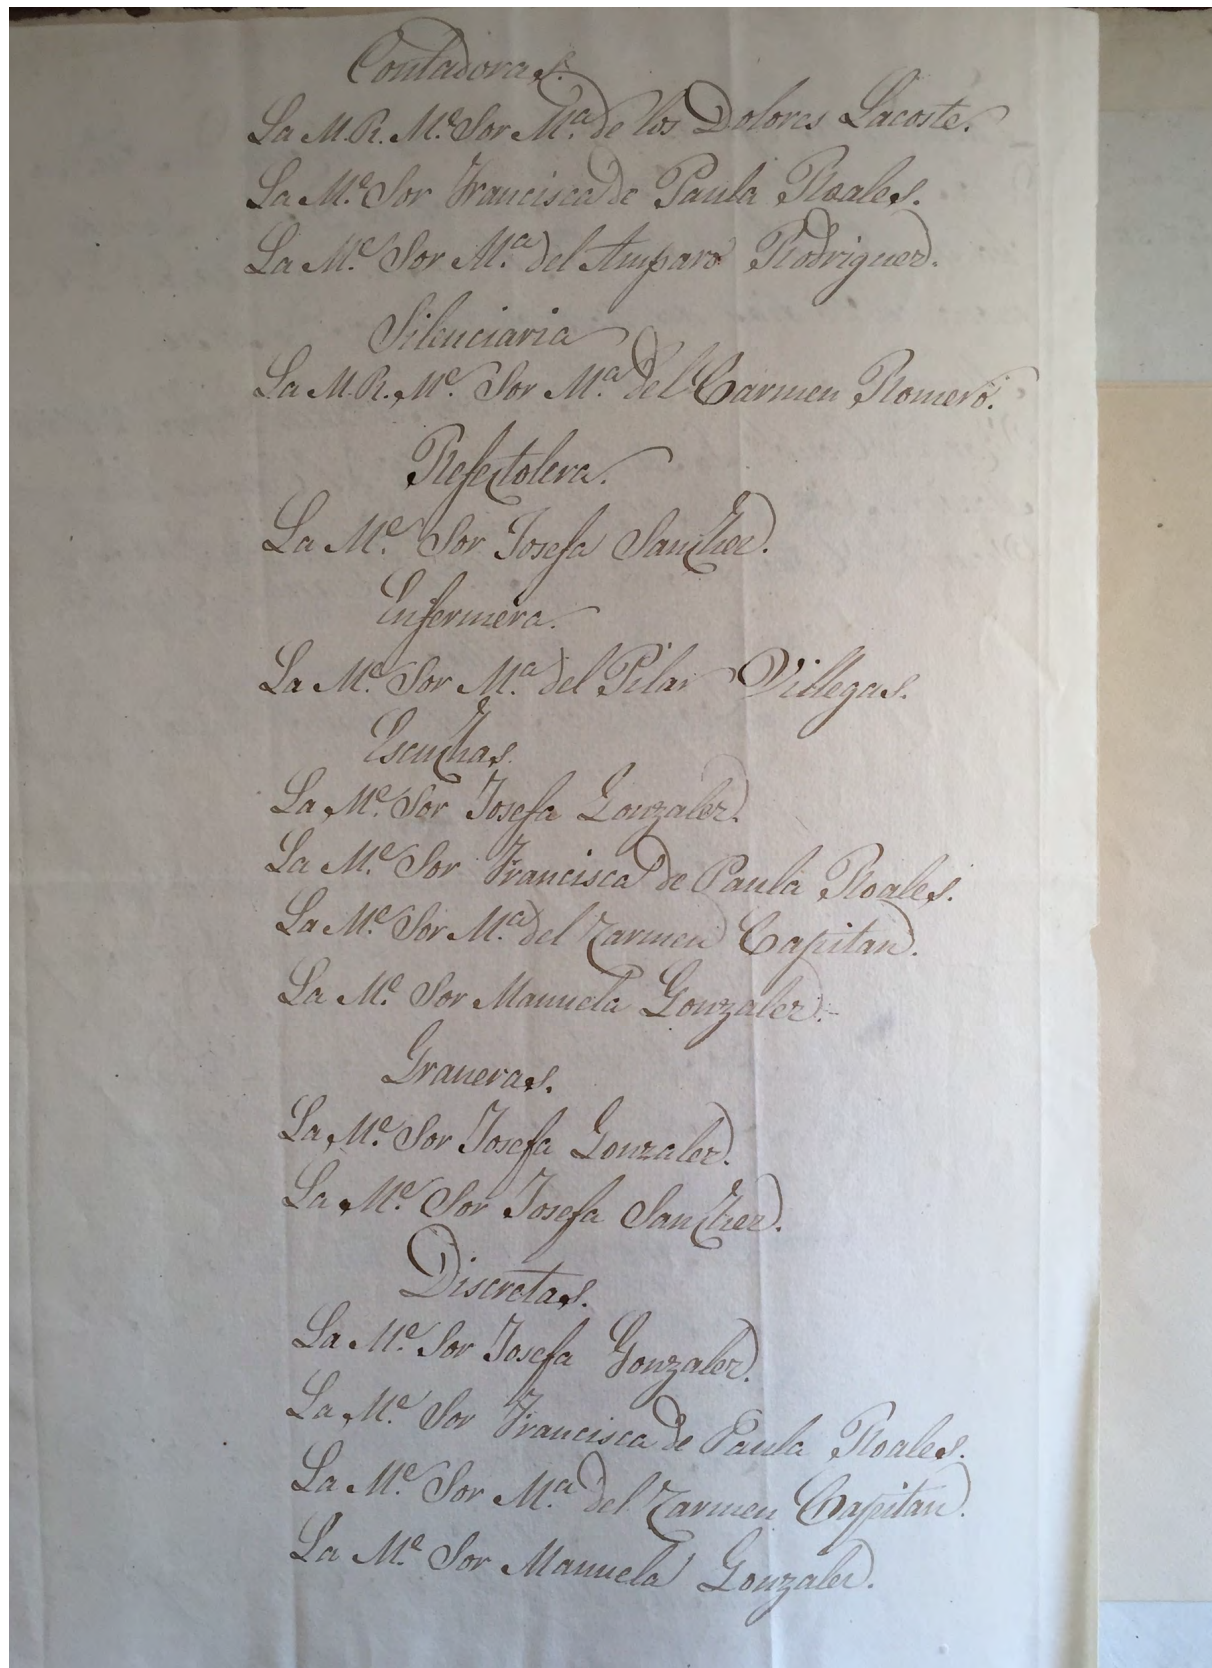 Contadoras.
La M.R. Me. Sor Ma. de los Dolores Lacoste.
La Me. Sor Francisca de Paula Roales.
La Me. Sor Ma. del Amparo Rodriguez.
Silenciaria
La M.R. Me. Sor Ma. del Carmen Romero.
Refectolera.
La Me. Sor Josefa Sanchez.
Enfermera.
La Me. Sor Ma. del Pilar Villegas.
Escuchas.
La Me. Sor Josefa Gonzalez.
La Me. Sor Francisca de Paula Roales.
La Me. Sor Ma. del Carmen Capitan.
La Me. Sor Manuela Gonzalez.-
Graneras.
La Me. Sor Josefa Gonzalez.
La Me. Sor Josefa Sanchez.
Discretas.
La Me. Sor Josefa Gonzalez.
La Me. Sor Francisca de Paula Roales.
La Me. Sor Ma. del Carmen Capitan.
La Me. Sor Manuela Gonzalez.